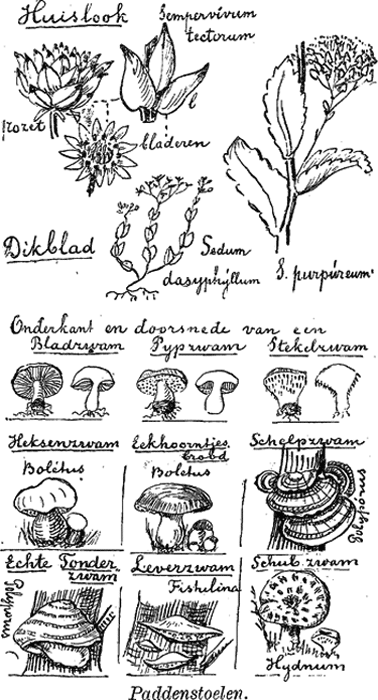 Huislook
Sempervivum
tectorum
rozet
l
bladeren
Dikblad
Sedum
dasyphyllum
S. purpúreum.
Onderkant en doorsnede van een
Bladzwam Pypzwam Stekelzwam
Heksenzwam
Bolétus
Eekhoorntjes
brood
Bolétus
Schelpzwam
Polyporus
Echte Tonder
zwam
Polyporus
Leverzwam
Fistulina
Schub zwam
Hydnum
Paddenstoelen.